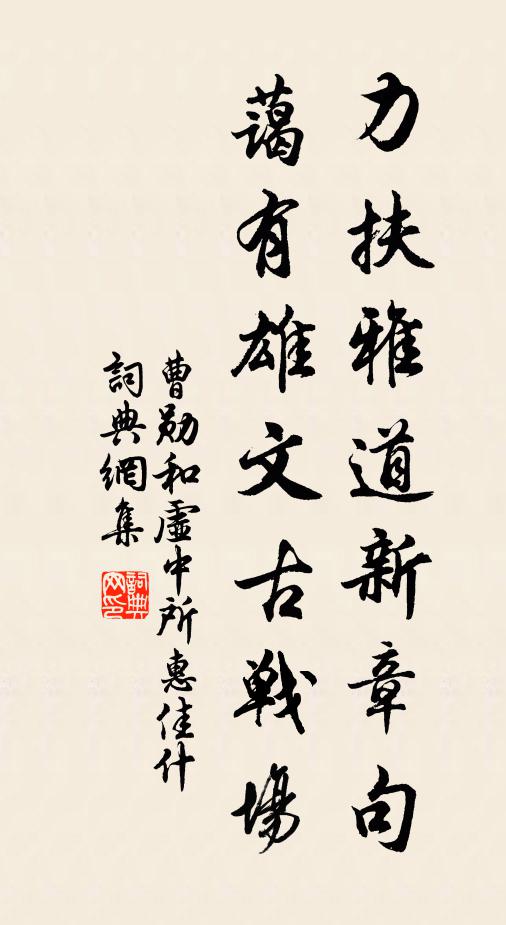 力扶雅道新章句
藹有雄文古戰場
曹勛和虛中所惠佳什
詞典網集
詞典网印